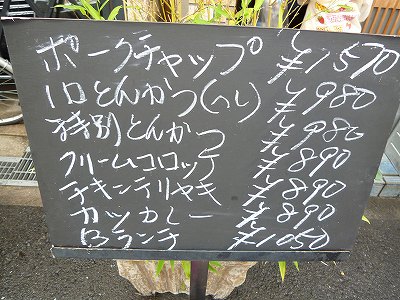 ポークチャップ ¥1570
1口とんかつ(ヘレ) ¥980
特別とんかつ ¥980
クリームコロッケ ¥890
チキンテリヤキ ¥890
カツカレー ¥890
Bランチ ¥1050